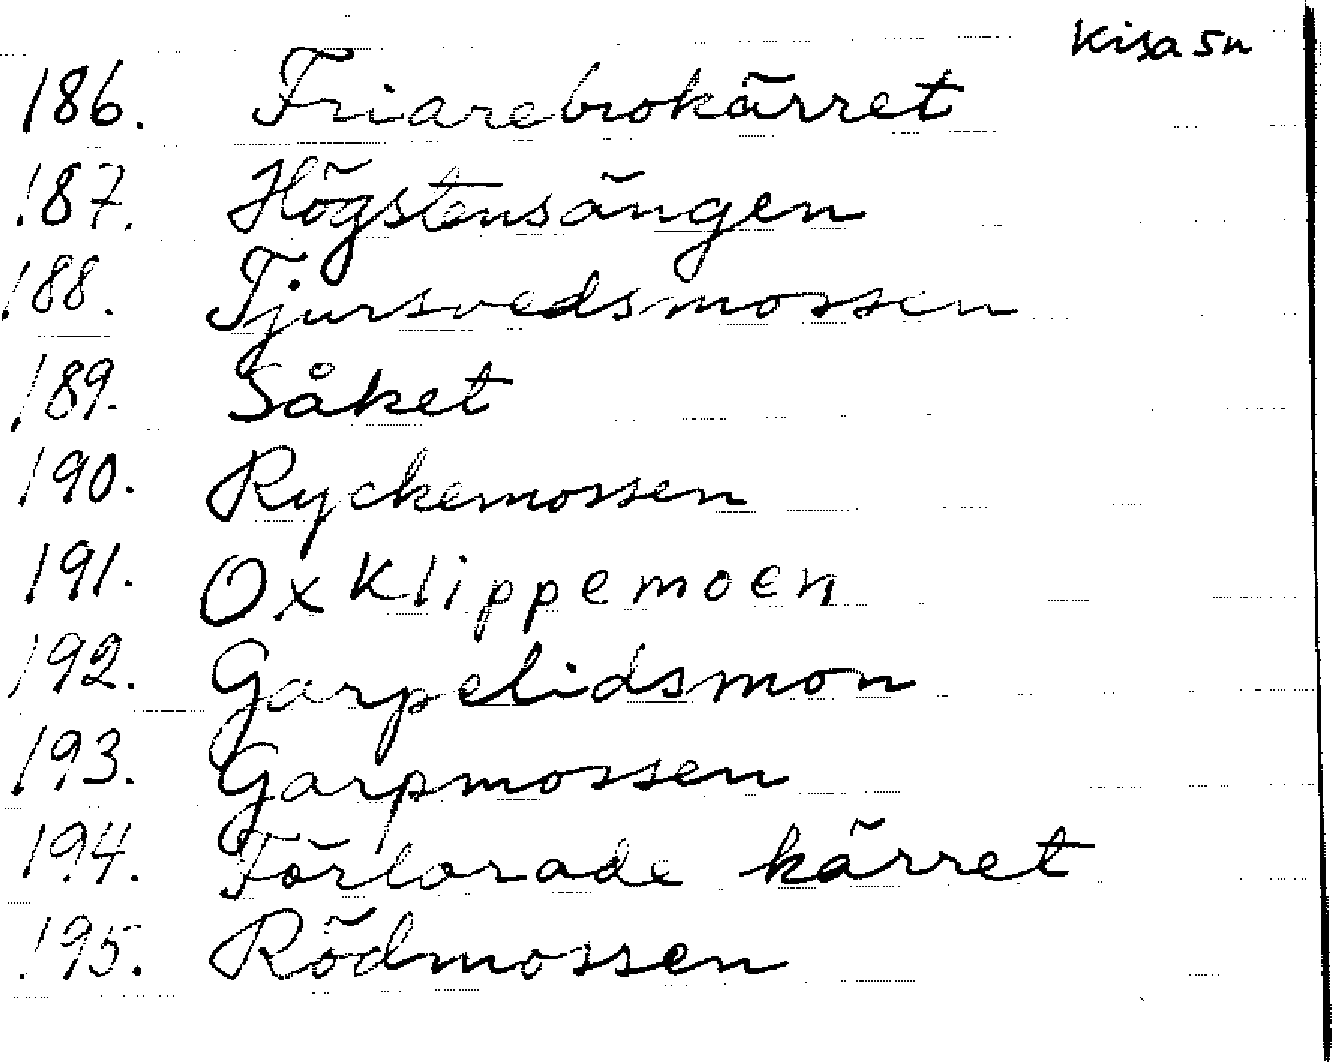 Kisa sn
186. Friarebrokärret
187. Högstensängen
188. Tjursvedsmossen
189. Såket
190. Ryckemossen
191. Oxklippemoen
192. Garpelidsmon
193. Garpmossen
194. Förlorade kärret
195. Rödmossen